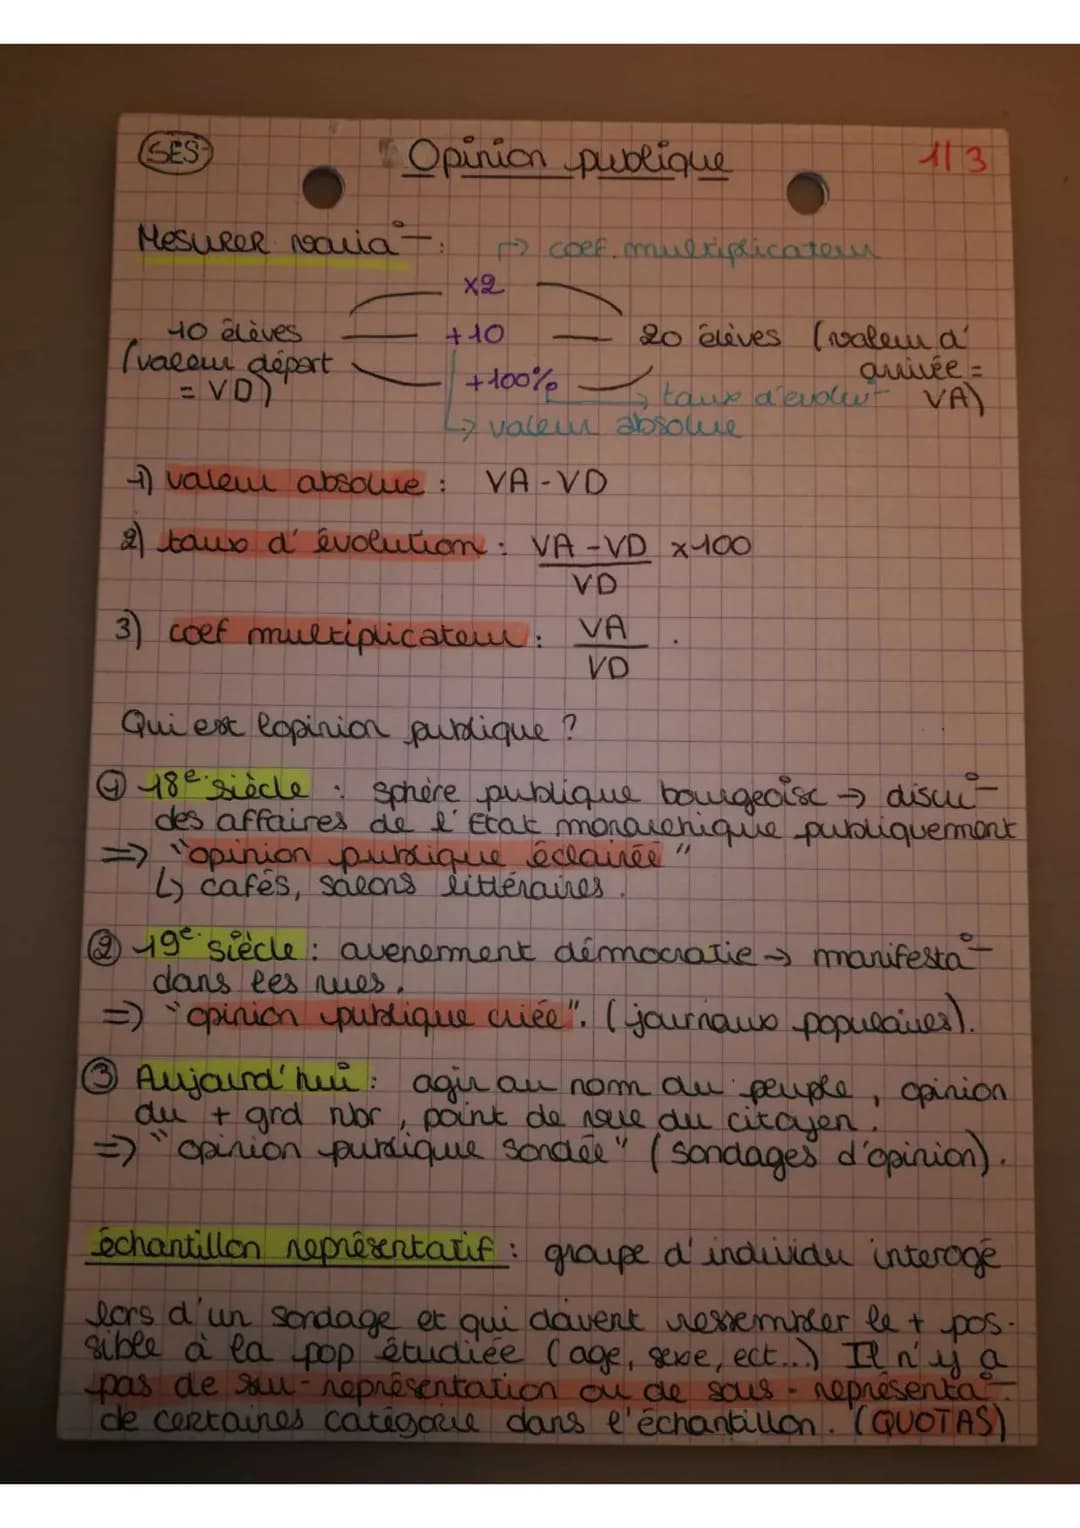 SES
Opinion publique
1/3
Mesurer varia°:
↳ coef. multiplicateur
x2
10 élèves
+10
20 élèves (valeur d'
(valeur départ
arrivée =
= VD)
+100%
↳ taux d'évolut°
VA)
↳ valeur absolue
1) valeur absolue : VA - VD
2) taux d'évolution : VA - VD x100
VD
3) coef multiplicateur : VA
VD
Qui est l'opinion publique ?
① 18e siècle : sphère publique bourgeoise → discu°
des affaires de l'Etat monarchique publiquement
⇒ "opinion publique éclairée"
↳ cafés, salons littéraires.
② 19e siècle : avenement démocratie → manifesta°
dans les rues.
⇒ "opinion publique criée". (journaux populaires).
③ Aujourd'hui : agir au nom du peuple, opinion
du + grd nbr, point de vue du citoyen.
⇒ "opinion publique sondée" (sondages d'opinion).
échantillon représentatif : groupe d'individu interogé
lors d'un sondage et qui doivent ressembler le + pos-
sible à la pop étudiée (age, sexe, ect...) Il n'y a
pas de sur-représentation ou de sous-représenta°
de certaines catégorie dans l'échantillon. (QUOTAS)